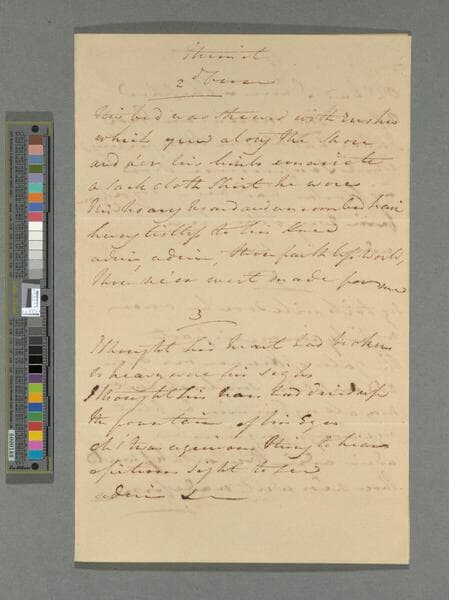 Hermit
2d Verse
His bed was strewed with rushes
which grew along the shore
and o'er his limbs emaciate
a sack cloth Shirt he wore
His hoary beard and uncombed hair
hung listless to his
adieu, adieu, thou faithless World,
thou ne'er wert made for me
3
I thought his heart had broken
so heavy were his sighs
I thought his tears had dried up
the fountain of his Eyes
oh! twas a grievous thing to hear
a piteous sight to see
adieu